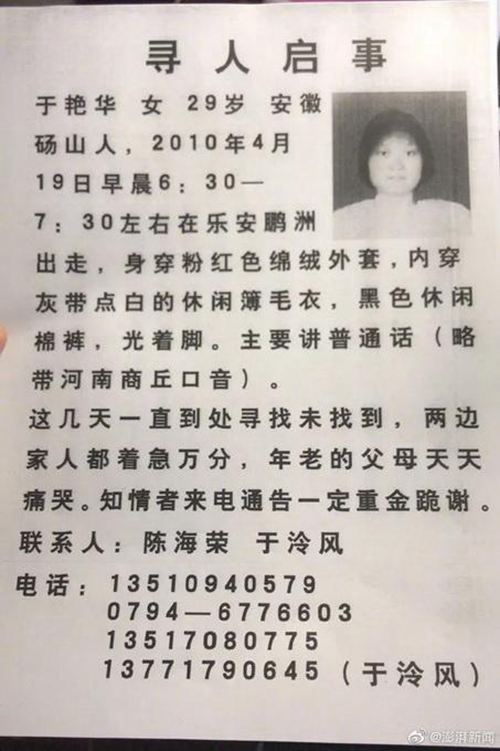 寻人启事
于艳华 女 29岁 安徽
砀山人，2010年4月
19日早晨6：30—
7：30左右在乐安鹏洲
出走，身穿粉红色绵绒外套，内穿
灰带点白的休闲簿毛衣，黑色休闲
棉裤，光着脚。主要讲普通话（略
带河南商丘口音）。
这几天一直到处寻找未找到，两边
家人都着急万分，年老的父母天天
痛哭。知情者来电通告一定重金跪谢。
联系人：陈海荣 于泠风
电话：13510940579
0794—6776603
13517080775
13771790645（于泠风）
@澎湃新闻